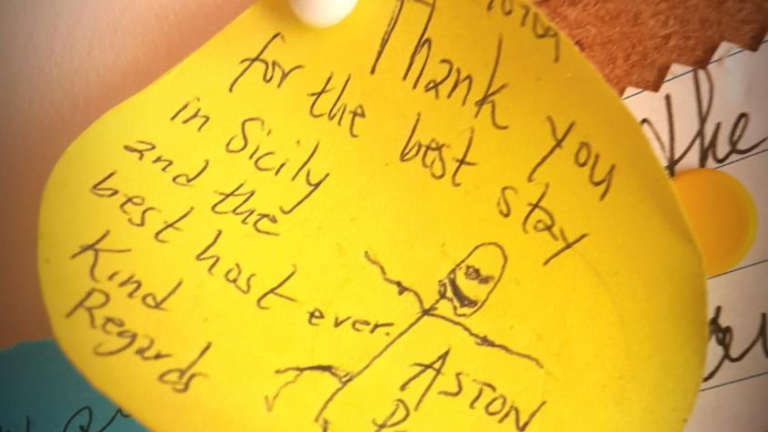 Thank you
for the best stay
in Sicily
and the
best host ever.
Kind
Regards
ASTON
the